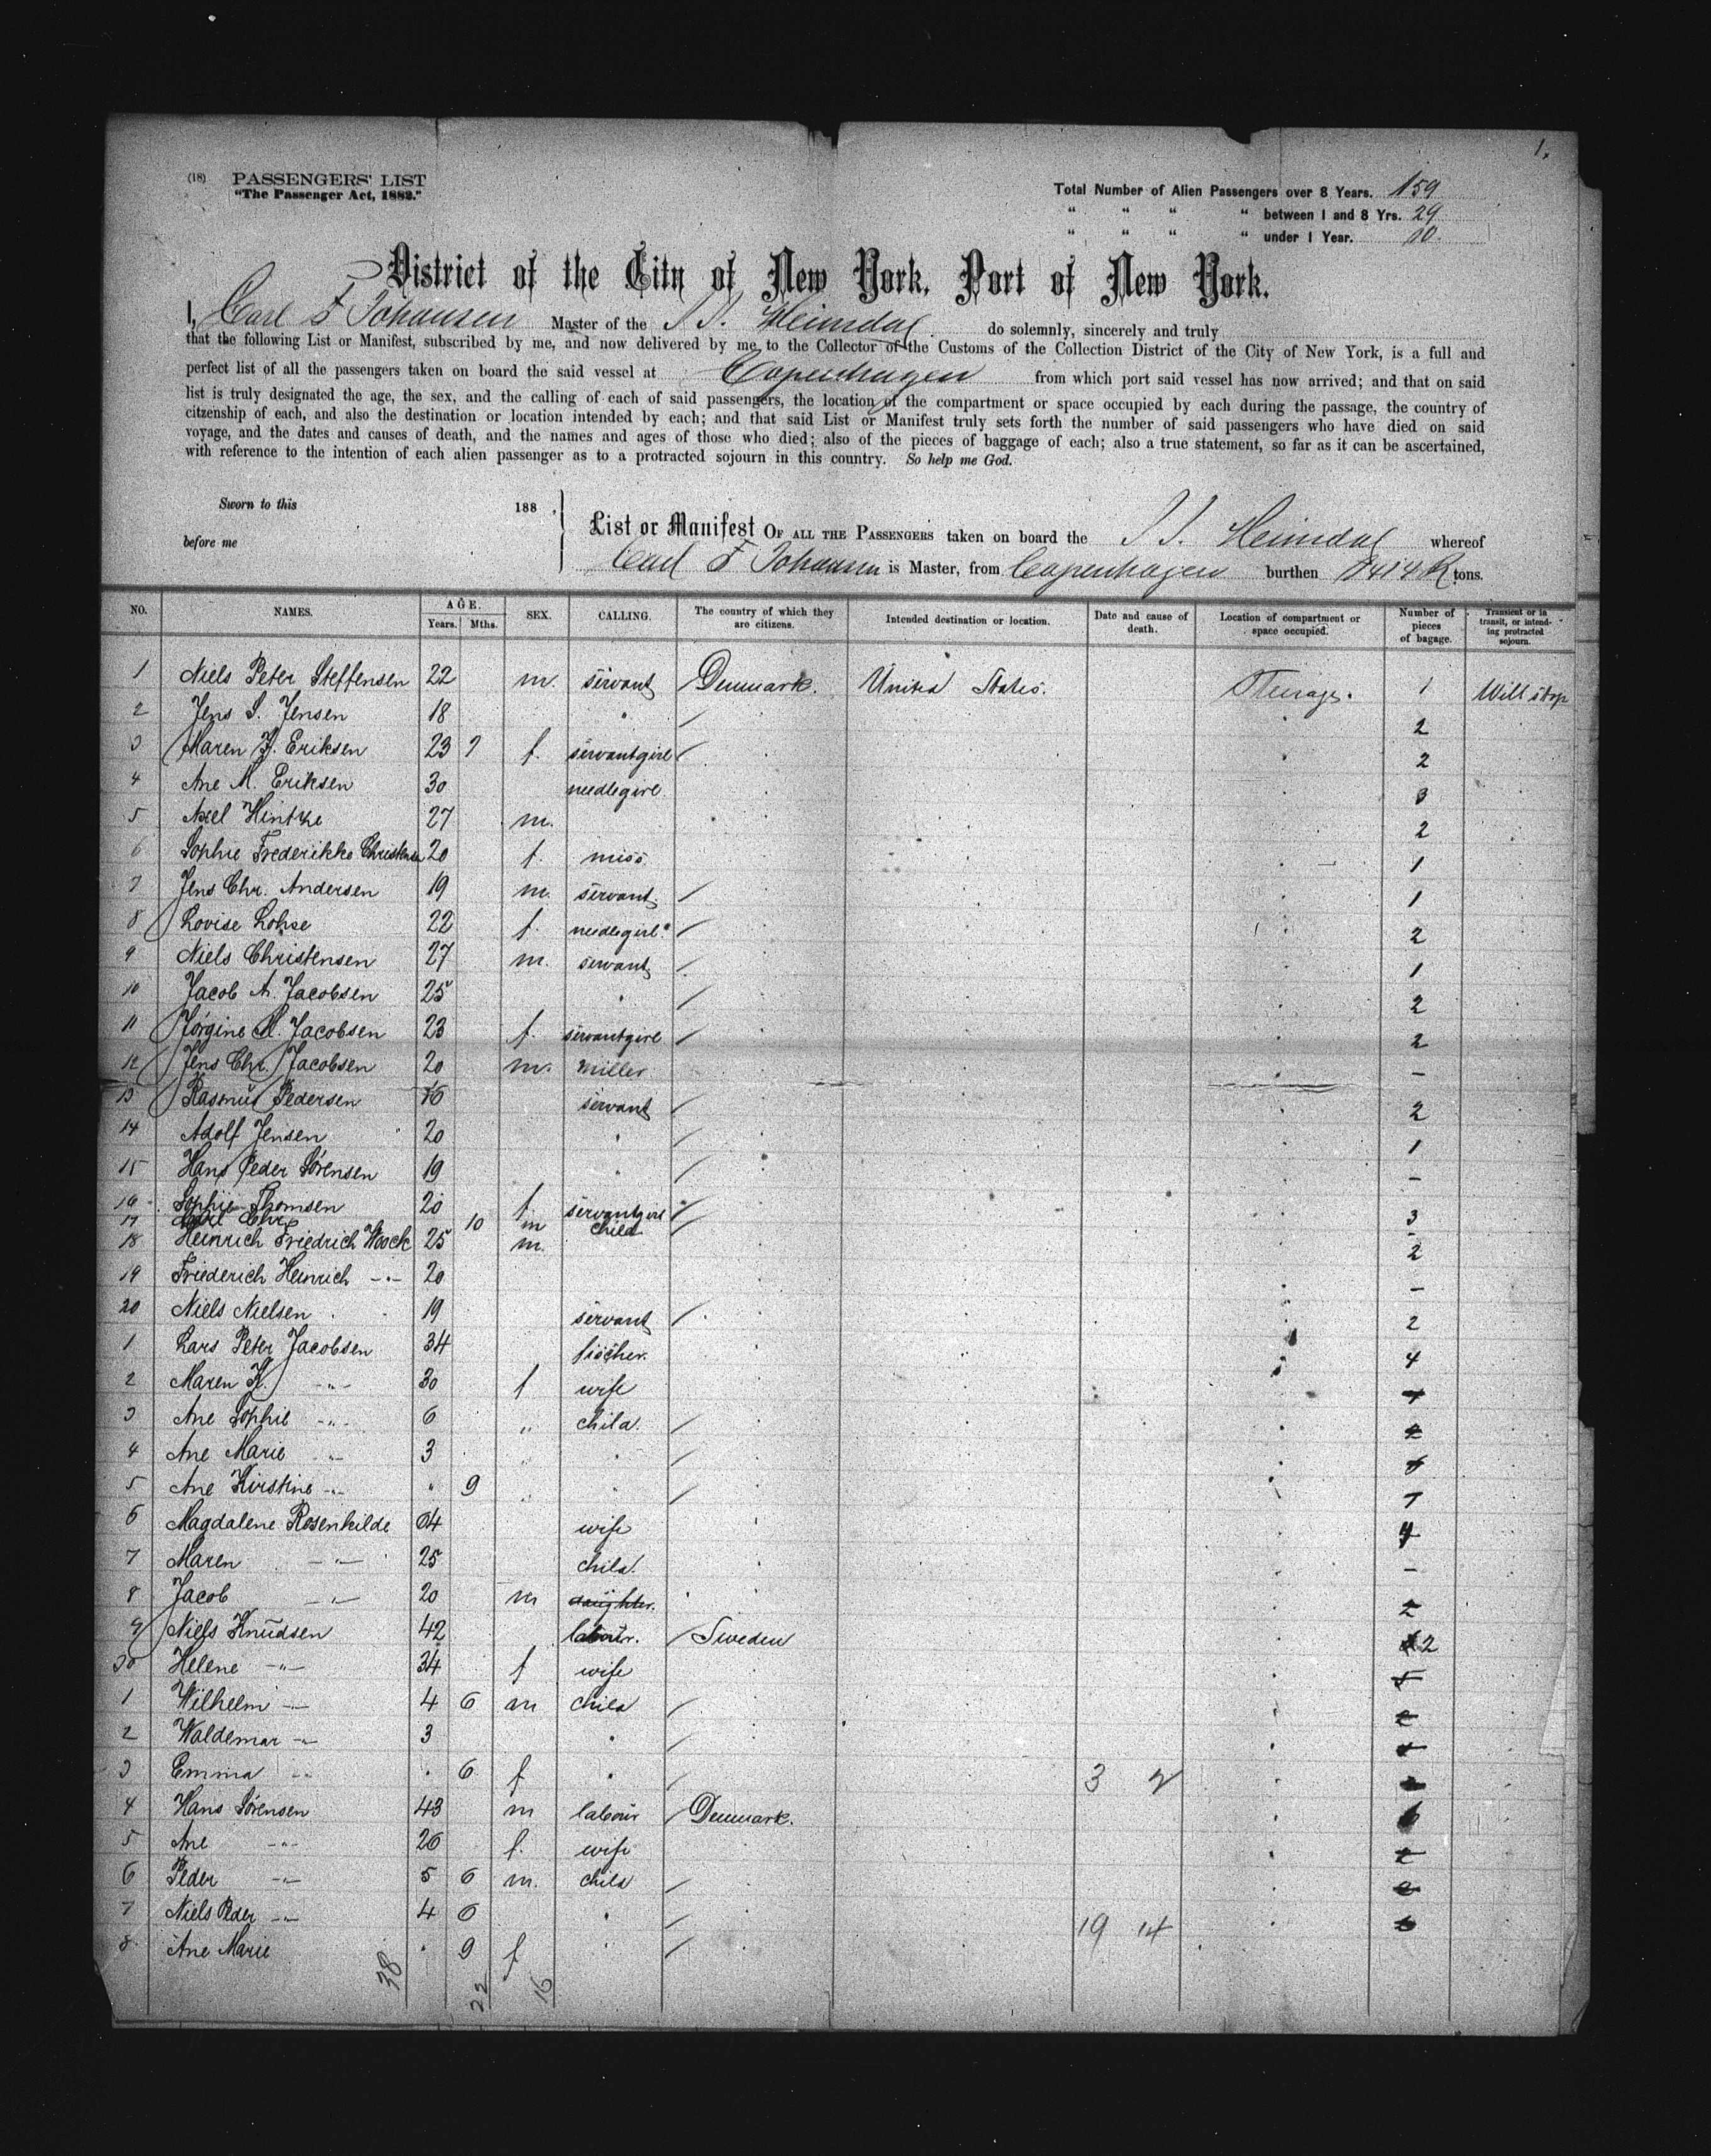 1.
(18) PASSENGERS' LIST
"The Passenger Act, 1882."
Total Number of Alien Passengers over 8 Years. 159
" " " " between 1 and 8 Yrs. 29
" " " " under 1 Year. 10.
District of the City of New York, Port of New York.
I, Carl F Johansen Master of the S.S. Heimdal do solemnly, sincerely and truly
that the following List or Manifest, subscribed by me, and now delivered by me to the Collector of the Customs of the Collection District of the City of New York, is a full and
perfect list of all the passengers taken on board the said vessel at Copenhagen from which port said vessel has now arrived; and that on said
list is truly designated the age, the sex, and the calling of each of said passengers, the location of the compartment or space occupied by each during the passage, the country of
citzenship of each, and also the destination or location intended by each; and that said List or Manifest truly sets forth the number of said passengers who have died on said
voyage, and the dates and causes of death, and the names and ages of those who died; also of the pieces of baggage of each; also a true statement, so far as it can be ascertained,
with reference to the intention of each alien passenger as to a protracted sojourn in this country. So help me God.
Sworn to this 188 .
before me
List or Manifest OF ALL THE PASSENGERS taken on board the S.S. Heimdal whereof
Carl F Johansen is Master, from Copenhagen burthen tons.
NO. NAMES. AGE. Years. Mths. SEX. CALLING. The country of which they are citizens. Intended destination or location. Date and cause of death. Location of compartment or space occupied. Number of pieces of bagage. Transient or in transit, or intending protracted sojourn.
1 Niels Peter Steffensen 22 m. servant Denmark. United States. Steerage. 1 Will stop
2 Jens S. Jensen 18 " / 2
3 Maren K. Eriksen 23 7 f. servantgirl / 2
4 Ane M. Eriksen 30 needlegirl. 3
5 Axel Hintze 27 m. 2
6 Sophie Frederikke Christensen 20 f. miss. 1
7 Jens Chr. Andersen 19 m. servant. / 1
8 Lovise Lohse 22 f. needlegirl. / 2
9 Niels Christensen 27 m. servant / 1
10 Jacob A. Jacobsen 25 " / 2
11 Jørgine M. Jacobsen 23 f. servantgirl / 2
12 Jens Chr. Jacobsen 20 m. miller –
13 Rasmus Pedersen 16 servant / 2
14 Adolf Jensen 20 " / 1
15 Hans Peder Sørensen 19 " / –
16 Sophie Thomsen 20 f servantgirl / 3
17 Carl Chr. 10 m child / –
18 Heinrich Friedrich Woock 25 m. 2
19 Friederich Heinrich -"- 20 –
20 Niels Nielsen 19 servant / 2
1 Lars Peter Jacobsen 34 fischer. 4
2 Maren K. -"- 30 f wife
3 Ane Sophie -"- 6 " child. /
4 Ane Marie -"- 3 " " /
5 Ane Kirstine -"- " 9 " " /
6 Magdalene Rosenkilde 64 wife 4
7 Maren -"- 25 child. –
8 Jacob -"- 20 m daughter. 2
9 Niels Knudsen 42 labour. / Sweden 2
30 Helene -"- 34 f wife
1 Wilhelm -"- 4 6 m child /
2 Waldemar -"- 3 " /
3 Emma -"- " 6 f " / 3 2
4 Hans Sørensen 43 m labour / Denmark. 6
5 Ane -"- 26 f. wife
6 Peder -"- 5 6 m. child /
7 Niels Peder -"- 4 6 " / 19 14
8 Ane Marie " 9 f " /
38 22 16